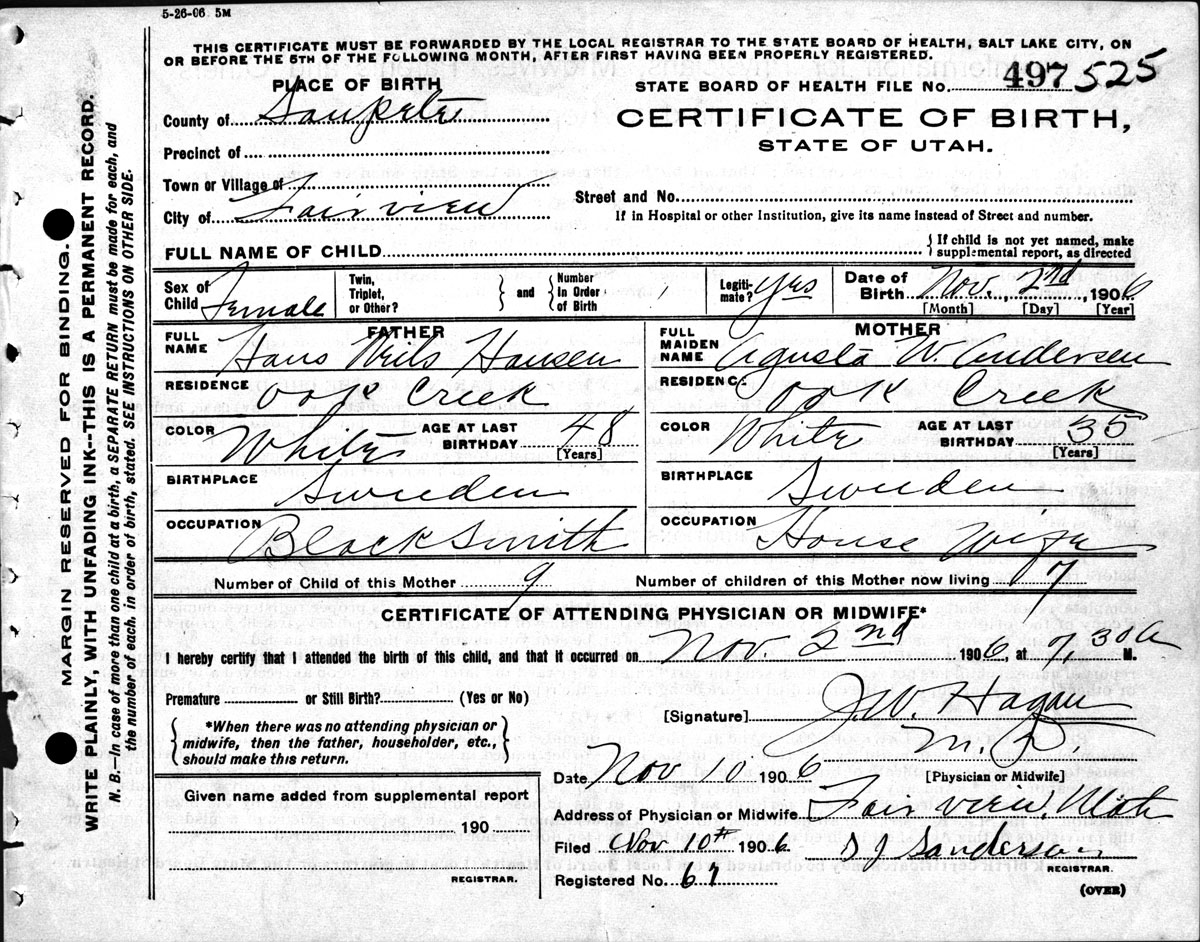 5-26-06 5M
THIS CERTIFICATE MUST BE FORWARDED BY THE LOCAL REGISTRAR TO THE STATE BOARD OF HEALTH, SALT LAKE CITY, ON
OR BEFORE THE 5TH OF THE FOLLOWING MONTH, AFTER FIRST HAVING BEEN PROPERLY REGISTERED.
PLACE OF BIRTH
STATE BOARD OF HEALTH FILE No. 497 525
County of Sanpete
CERTIFICATE OF BIRTH,
STATE OF UTAH.
Precinct of
Town or Village of
Street and No.
City of Fairview
If in Hospital or other Institution, give its name instead of Street and number.
FULL NAME OF CHILD
{ If child is not yet named, make
supplemental report, as directed
Sex of Child Female
Twin, Triplet, or Other? } and { Number In Order of Birth
Legitimate? Yes
Date of Birth Nov. 2nd, 1906
[Month] [Day] [Year]
FATHER
FULL NAME Hans Nils Hansen
RESIDENCE Oak Creek
COLOR White
AGE AT LAST BIRTHDAY 48
[Years]
BIRTHPLACE Sweden
OCCUPATION Black Smith
MOTHER
FULL MAIDEN NAME Agusta W. Andersen
RESIDENCE Oak Creek
COLOR White
AGE AT LAST BIRTHDAY 35
[Years]
BIRTHPLACE Sweden
OCCUPATION House Wife
Number of Child of this Mother 9
Number of children of this Mother now living 7
CERTIFICATE OF ATTENDING PHYSICIAN OR MIDWIFE*
I hereby certify that I attended the birth of this child, and that it occurred on Nov. 2nd 1906, at 7,30 A M.
Premature or Still Birth? (Yes or No)
{ *When there was no attending physician or
midwife, then the father, householder, etc.,
should make this return. }
[Signature] J.W. Hagan
M.D.
[Physician or Midwife]
Date Nov 10 1906
Given name added from supplemental report
190
REGISTRAR.
Address of Physician or Midwife Fairview Utah
Filed Nov 10th 1906
S J Sanderson
REGISTRAR.
Registered No. 67
(OVER)
MARGIN RESERVED FOR BINDING.
WRITE PLAINLY, WITH UNFADING INK--THIS IS A PERMANENT RECORD.
N. B.—In case of more than one child at a birth, a SEPARATE RETURN must be made for each, and
the number of each, in order of birth, stated. SEE INSTRUCTIONS ON OTHER SIDE.